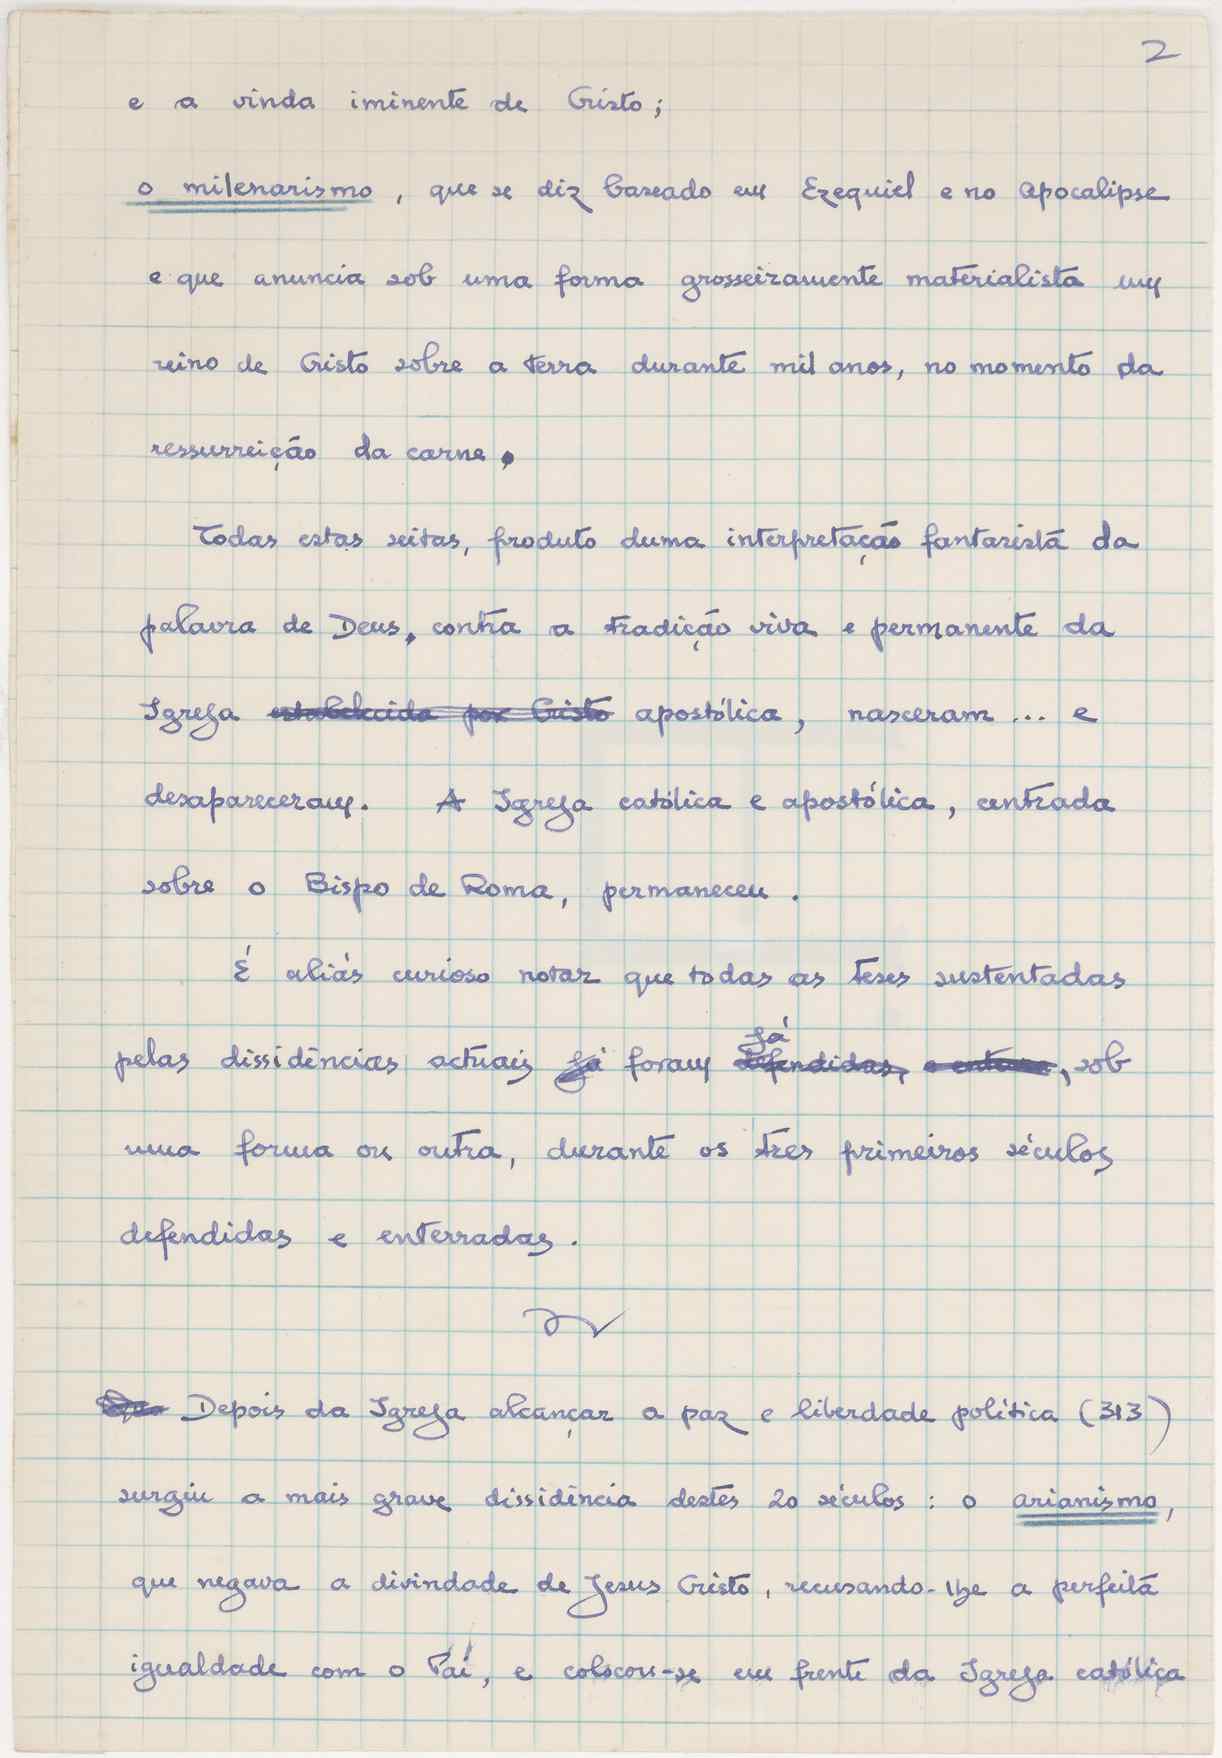 2
e a vinda iminente de Cristo;
o milenarismo, que se diz baseado em Ezequiel e no Apocalipse
e que anuncia sob uma forma grosseiramente materialista um
reino de Cristo sobre a terra durante mil anos, no momento da
ressurreição da carne.
Todas estas seitas, produto duma interpretação fantasista da
palavra de Deus, contra a tradição viva e permanente da
Igreja estabelecida por Cristo apostólica, nasceram ... e
desapareceram. A Igreja católica e apostólica, centrada
sobre o Bispo de Roma, permaneceu.
É aliás curioso notar que todas as teses sustentadas
já
pelas dissidências actuais já foram defendidas, , sob
uma forma ou outra, durante os tres primeiros séculos
defendidas e enterradas.
Depois da Igreja alcançar a paz e liberdade política (313)
surgiu a mais grave dissidência destes 20 séculos: o arianismo,
que negava a divindade de Jesus Cristo, recusando-lhe a perfeita
igualdade com o Pai, e colocou-se em frente da Igreja católica